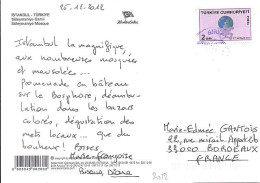 25-12-2012
ISTANBUL - TÜRKİYE
Süleymaniye Camii
Süleymaniye Mosque
TÜRKİYE CUMHURİYETİ
Istanbul la magnifique,
aux nombreuses mosquées
et mausolée...
Promenade en bâteau
sur le Bosphore, déambu-
lation dans les bazars
colorés, dégustation des
mets locaux... que du
bonheur! Bises
Marie-Françoise
Diana
Marie-Edmée GANTOIS
22, rue
33000 BORDEAUX
FRANCE
2012